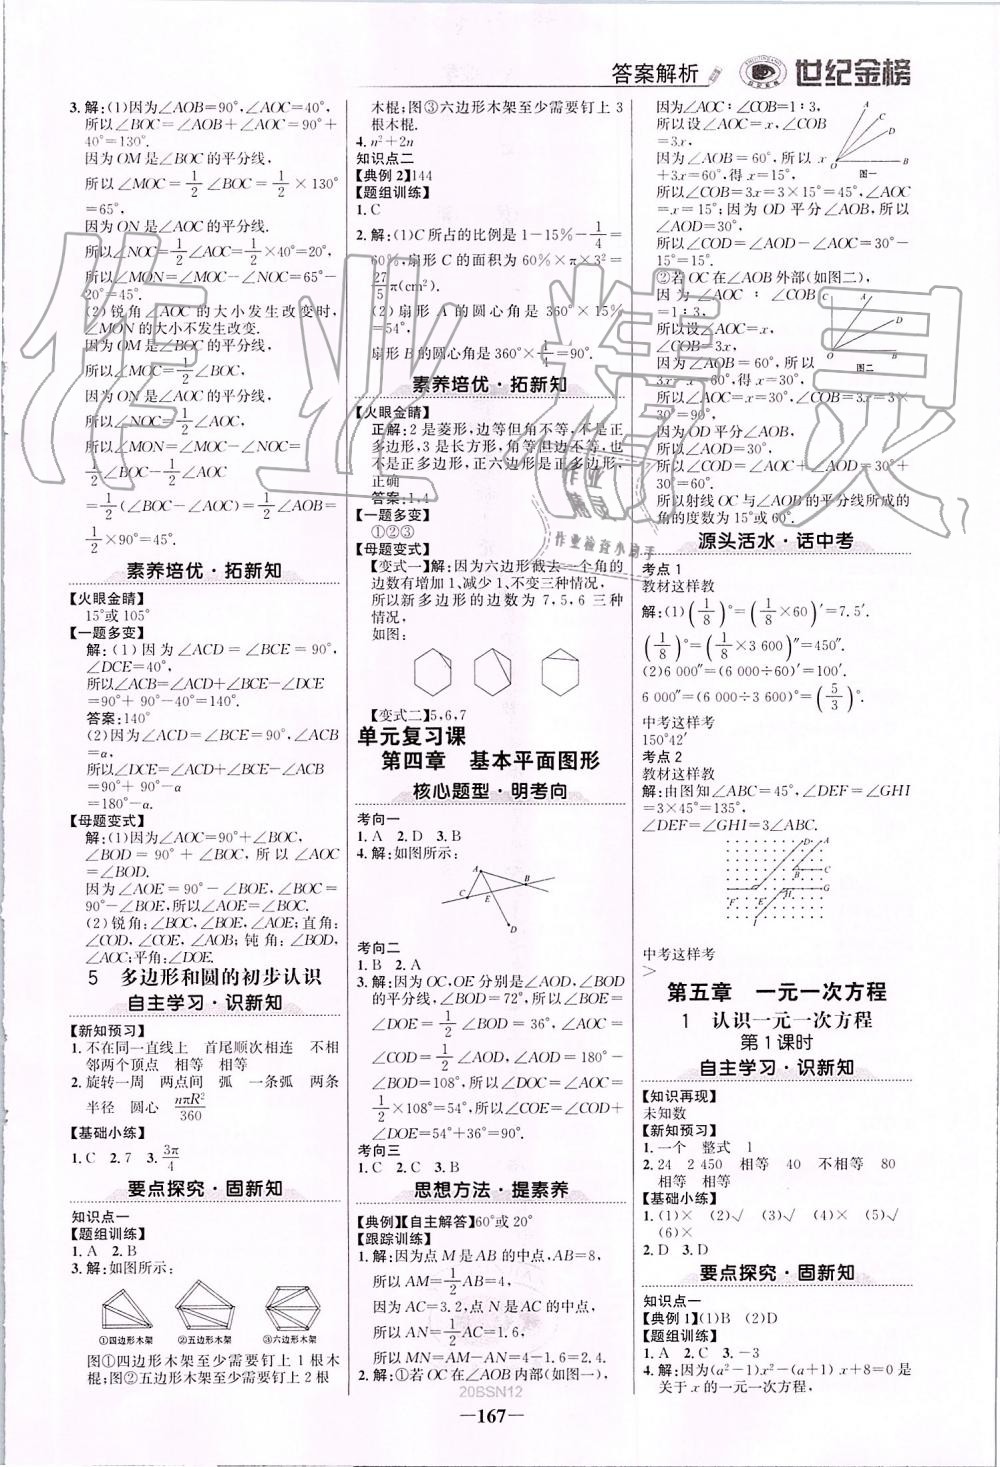 答案解析 世纪金榜
3.解:(1)因为∠AOB=90°,∠AOC=40°,
所以∠BOC=∠AOB+∠AOC=90°+
40°=130°.
因为OM是∠BOC的平分线,
所以∠MOC=1/2∠BOC=1/2×130°
=65°,
因为ON是∠AOC的平分线.
所以∠NOC=1/2∠AOC=1/2×40°=20°,
所以∠MON=∠MOC-∠NOC=65°-
20°=45°.
(2)锐角∠AOC的大小发生改变时,
∠MON的大小不发生改变.
因为OM是∠BOC的平分线,
所以∠MOC=1/2∠BOC,
因为ON是∠AOC的平分线,
所以∠NOC=1/2∠AOC,
所以∠MON=∠MOC-∠NOC=
1/2∠BOC-1/2∠AOC
=1/2(∠BOC-∠AOC)=1/2∠AOB=
1/2×90°=45°.
素养培优·拓新知
【火眼金睛】
15°或105°
【一题多变】
解:(1)因为∠ACD=∠BCE=90°,
∠DCE=40°,
所以∠ACB=∠ACD+∠BCE-∠DCE
=90°+90°-40°=140°.
答案:140°
(2)因为∠ACD=∠BCE=90°,∠ACB
=α,
所以∠DCE=∠ACD+∠BCE-∠ACB
=90°+90°-α
=180°-α.
【母题变式】
解:(1)因为∠AOC=90°+∠BOC,
∠BOD=90°+∠BOC,所以∠AOC
=∠BOD.
因为∠AOE=90°-∠BOE,∠BOC=
90°-∠BOE,所以∠AOE=∠BOC.
(2)锐角:∠BOC,∠BOE,∠AOE;直角:
∠COD,∠COE,∠AOB;钝角:∠BOD,
∠AOC;平角:∠DOE.
5 多边形和圆的初步认识
自主学习·识新知
【新知预习】
1.不在同一直线上 首尾顺次相连 不相
邻两个顶点 相等 相等
2.旋转一周 两点间 弧 一条弧 两条
半径 圆心 nπR²/360
【基础小练】
1.C 2.7 3.3π/4
要点探究·固新知
知识点一
【题组训练】
1.A 2.B
3.解:如图所示:
①四边形木架 ②五边形木架 ③六边形木架
图①四边形木架至少需要钉上1根木
棍;图②五边形木架至少需要钉上2根
木棍;图③六边形木架至少需要钉上3
根木棍.
4.n²+2n
知识点二
【典例2】144
【题组训练】
1.C
2.解:(1)C所占的比例是1-15%-1/4=
60%,扇形C的面积为60%×π×3²=
27/5π(cm²).
(2)扇形A的圆心角是360°×15%
=54°,
扇形B的圆心角是360°×1/4=90°.
素养培优·拓新知
【火眼金睛】
正解:2是菱形,边等但角不等,不是正
多边形,3是长方形,角等但边不等,也
不是正多边形,正六边形是正多边形,
正确
答案:1,4
【一题多变】
①②③
【母题变式】
【变式一】解:六边形截去一个角的
边数有增加1、减少1、不变三种情况,
所以新多边形的边数为7,5,6三种
情况,
如图:
【变式二】5,6,7
单元复习课
第四章 基本平面图形
核心题型·明考向
考向一
1.A 2.D 3.B
4.解:如图所示:
A
C E B
D
考向二
1.B 2.A
3.解:因为OC,OE分别是∠AOD,∠BOD
的平分线,∠BOD=72°,所以∠BOE=
∠DOE=1/2∠BOD=36°,∠AOC=
∠COD=1/2∠AOD,∠AOD=180°-
∠BOD=108°,所以∠DOC=∠AOC=
1/2×108°=54°,所以∠COE=∠COD+
∠DOE=54°+36°=90°.
考向三
1.C 2.C 3.C
思想方法·提素养
【典例】【自主解答】60°或20°
【跟踪训练】
1.解:因为点M是AB的中点,AB=8,
所以AM=1/2AB=4,
因为AC=3.2,点N是AC的中点,
所以AN=1/2AC=1.6,
所以MN=AM-AN=4-1.6=2.4.
2.解:①若OC在∠AOB内部(如图一),
因为∠AOC∶∠COB=1∶3,
所以设∠AOC=x,∠COB
=3x,
因为∠AOB=60°,所以x
+3x=60°,得x=15°,
所以∠COB=3x=3×15°=45°,∠AOC
=x=15°;因为OD平分∠AOB,所以
∠AOD=30°,
所以∠COD=∠AOD-∠AOC=30°-
15°=15°.
A D C O B 图一
②若OC在∠AOB外部(如图二),
因为∠AOC∶∠COB
=1∶3,
所以设∠AOC=x,
∠COB=3x,
因为∠AOB=60°,所以
3x-x=60°,得x=30°,
所以∠AOC=x=30°,∠COB=3x=3×
30°=90°,
因为OD平分∠AOB,
所以∠AOD=30°,
所以∠COD=∠AOC+∠AOD=30°+
30°=60°.
所以射线OC与∠AOB的平分线所成的
角的度数为15°或60°.
C A D O B 图二
源头活水·话中考
考点1
教材这样教
解:(1)(1/8)°=(1/8×60)′=7.5′.
(1/8)°=(1/8×3 600)″=450″.
(2)6 000″=(6 000÷60)′=100′.
6 000″=(6 000÷3 600)°=(5/3)°.
中考这样考
150°42′
考点2
教材这样教
解:由图知∠ABC=45°,∠DEF=∠GHI
=3×45°=135°,
∠DEF=∠GHI=3∠ABC.
D A
B C
F E H G
I
中考这样考
>
第五章 一元一次方程
1 认识一元一次方程
第1课时
自主学习·识新知
【知识再现】
未知数
【新知预习】
1.一个 整式 1
2.24 2 450 相等 40 不相等 80
相等
【基础小练】
1.(1)× (2)√ (3)× (4)× (5)√
(6)×
2.D 3.D
要点探究·固新知
知识点一
【典例1】(1)B (2)D
【题组训练】
1.A 2.C 3.-3
4.解:因为(a²-1)x²-(a+1)x+8=0是
关于x的一元一次方程,
20BSN12
—167—
作业精灵
作业精灵
作业检查小助手